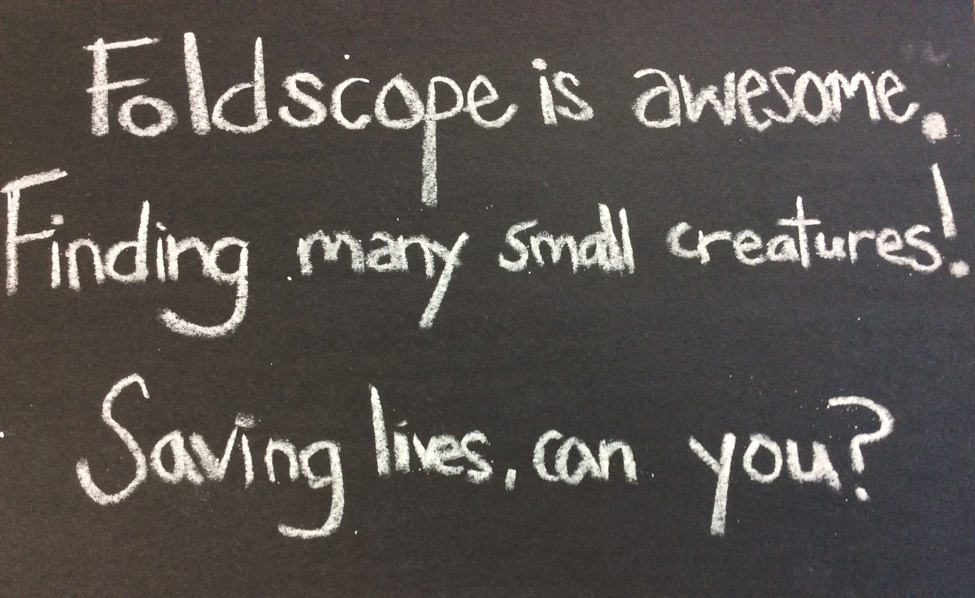 Foldscope is awesome.
Finding many small creatures!
Saving lives, can you?